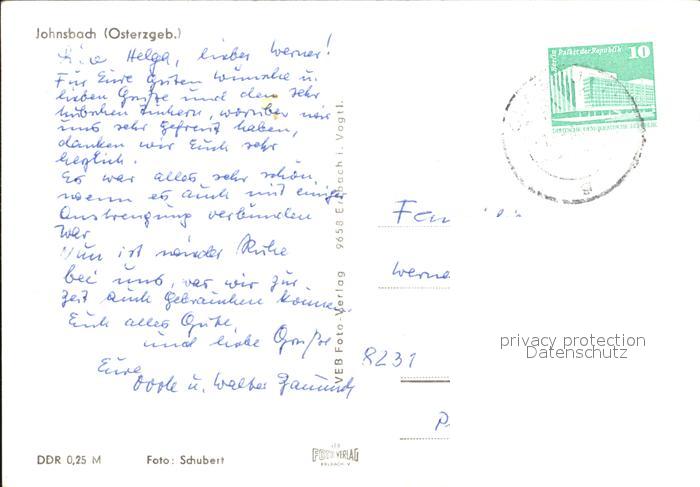 Johnsbach (Osterzgeb.)
Helga, lieber Werner!
Für Eure guten Wünsche u.
lieben Grüße und den sehr
hübschen worüber wir
uns sehr gefreut haben,
danken wir Euch sehr
herzlich.
Es war alles sehr schön,
wenn es auch mit einiger
Anstrengung verbunden
war
Nun ist wieder Ruhe
bei uns, was wir zur
Zeit auch gebrauchen können.
Euch alles Gute,
und liebe Grüße
Eure
u. Walter
VEB Foto-Verlag 9658 Erlbach i. Vogtl.
Berlin Palast der Republik
10
DEUTSCHE DEMOKRATISCHE REPUBLIK
Fam
Werne
8231
privacy protection
Datenschutz
DDR 0,25 M
Foto: Schubert
VEB
FOTO VERLAG
ERLBACH V.